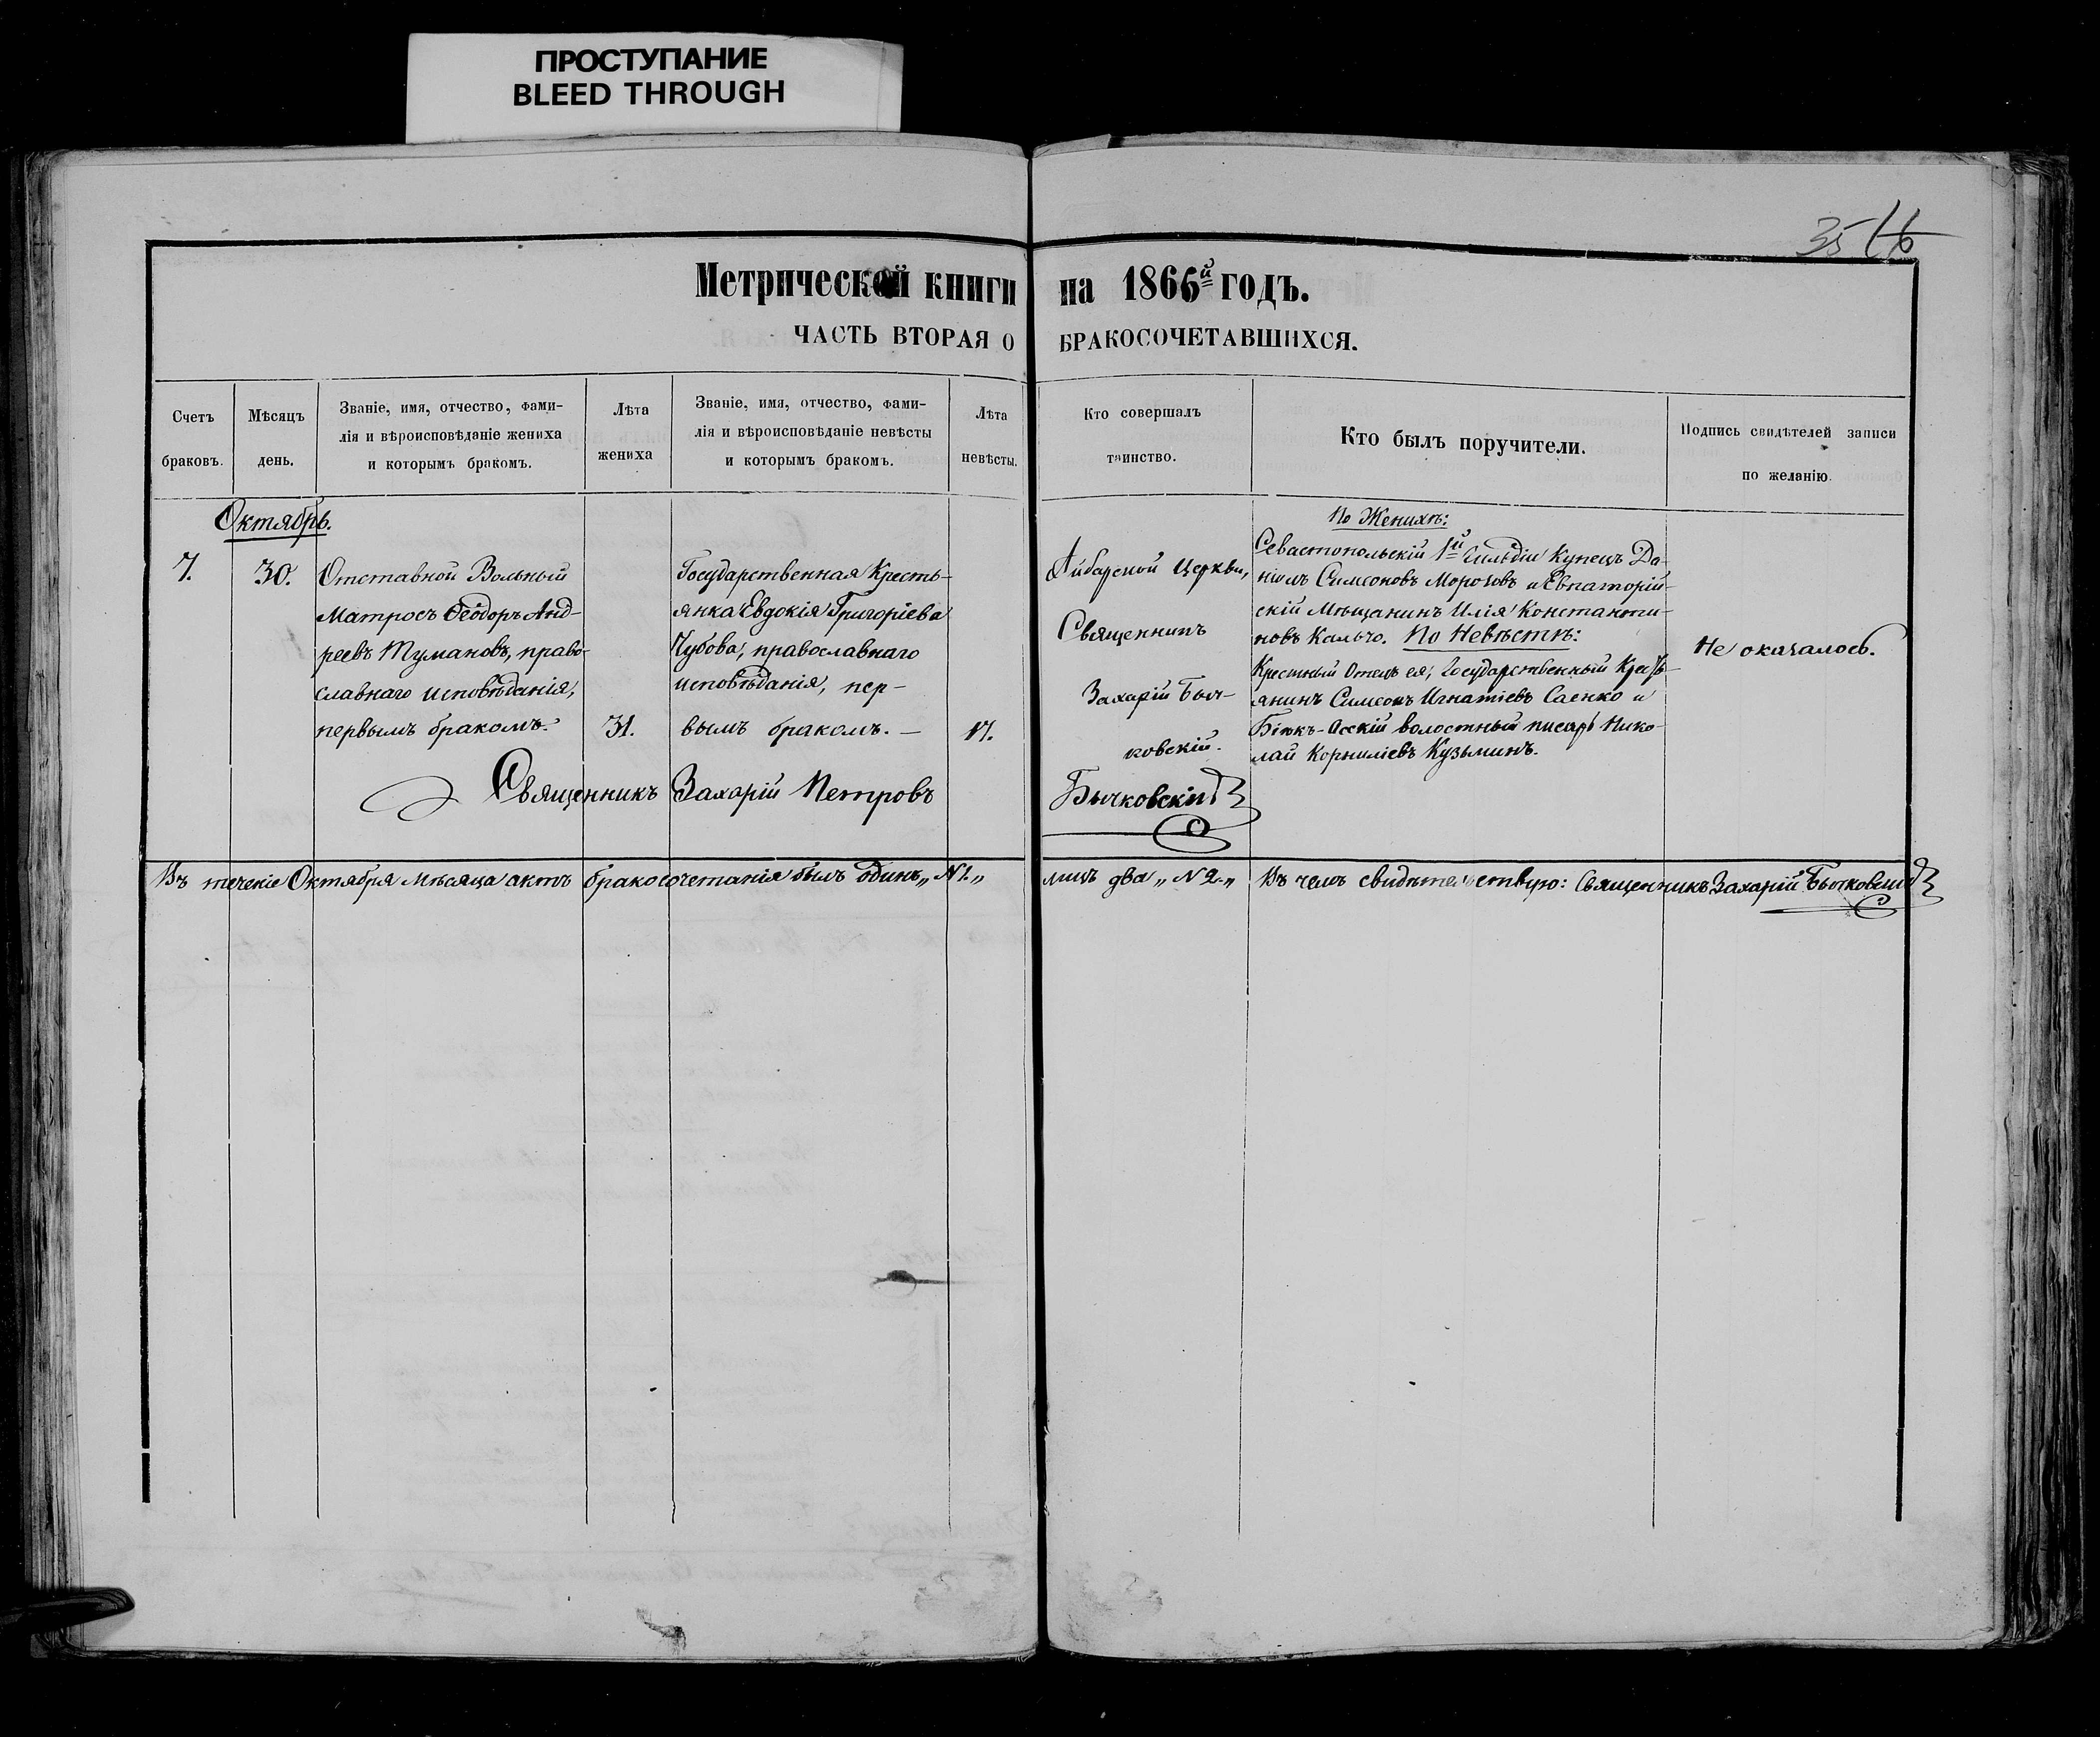 ПРОСТУПАНИЕ
BLEED THROUGH
35
Метрической книги на 1866й годъ.
ЧАСТЬ ВТОРАЯ О БРАКОСОЧЕТАВШИХСЯ.
Счетъ
браковъ.
Мѣсяцъ
день.
Званіе, имя, отчество, фами-
лія и вѣроисповѣданіе жениха
и которымъ бракомъ.
Лѣта
жениха
Званіе, имя, отчество, фами-
лія и вѣроисповѣданіе невѣсты
и которымъ бракомъ.
Лѣта
невѣсты.
Кто совершалъ
таинство.
Кто былъ поручители.
Подпись свидѣтелей записи
по желанію.
Октябрь.
7.
30.
Отставной Вольный
Матросъ Ѳеодоръ Анд-
реевъ Тумановъ, право-
славнаго исповѣданія,
первымъ бракомъ.
31.
Государственная Кресть-
янка Евдокія Григоріева
Чубова, православнаго
исповѣданія, пер-
вымъ бракомъ. —
17.
Айбарской Церкви,
Священникъ
Захарій Быч-
ковскій.
По Женихѣ:
Севастопольскій 1й Гильдіи Купецъ Да-
ніилъ Симеоновъ Морозовъ и Евпаторій-
скій Мѣщанинъ Илія Константи-
новъ Кальчо. По Невѣстѣ:
Крестный Отецъ ея, Государственный Кресть-
янинъ Симеонъ Игнатіевъ Саенко и
Біюкъ-Асскій волостный писарь Нико-
лай Корниліевъ Кузьминъ.
Не оказалось.
Священникъ Захарій Петровъ Бычковскій
Въ теченіе Октября Мѣсяца актъ бракосочетанія былъ одинъ „N 1.„ лицъ два „N 2.„ Въ чемъ свидѣтельствую: Священникъ Захарій Бычковскій